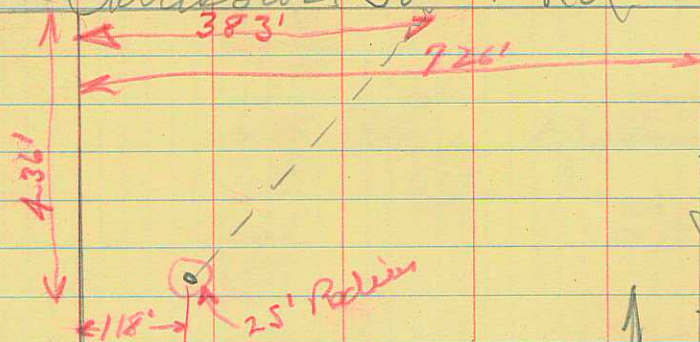 383'
726'
436'
118'
25' Radius